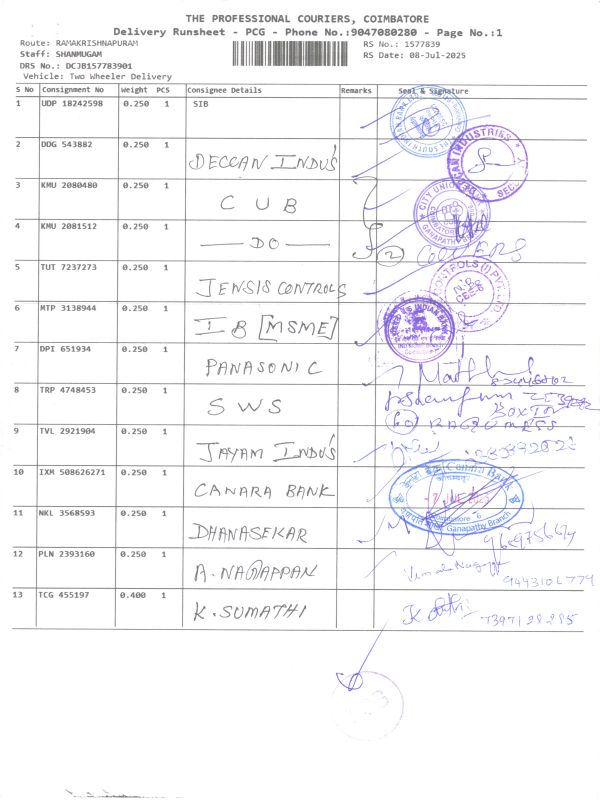 THE PROFESSIONAL COURIERS, COIMBATORE
Delivery Runsheet - PCG - Phone No.:9047080280 - Page No.:1
Route: RAMAKRISHNAPURAM
RS No.: 1577839
Staff: SHANMUGAM
RS Date: 08-Jul-2025
DRS No.: DCJB157783901
Vehicle: Two Wheeler Delivery
S No Consignment No Weight PCS Consignee Details Remarks Seal & Signature
1 UDP 18242598 0.250 1 SIB
2 DDG 543882 0.250 1 DECCAN INDUS
DECCAN INDUSTRIES
3 KMU 2080480 0.250 1 CUB
CITY UNION
GANAPATHY
4 KMU 2081512 0.250 1 DO
2
5 TUT 7237273 0.250 1 JENSIS CONTROLS
CONTROLS (I) PVT LTD
6 MTP 3138944 0.250 1 IB [MSME]
INDIAN BANK
7 DPI 651934 0.250 1 PANASONIC
8 TRP 4748453 0.250 1 SWS
9 TVL 2921904 0.250 1 JAYAM INDUS
10 IXM 508626271 0.250 1 CANARA BANK
Canara Bank
Ganapathy Branch
11 NKL 3568593 0.250 1 DHANASEKAR
12 PLN 2393160 0.250 1 A. NAGAPPAN
13 TCG 455197 0.400 1 K. SUMATHI
7397128285